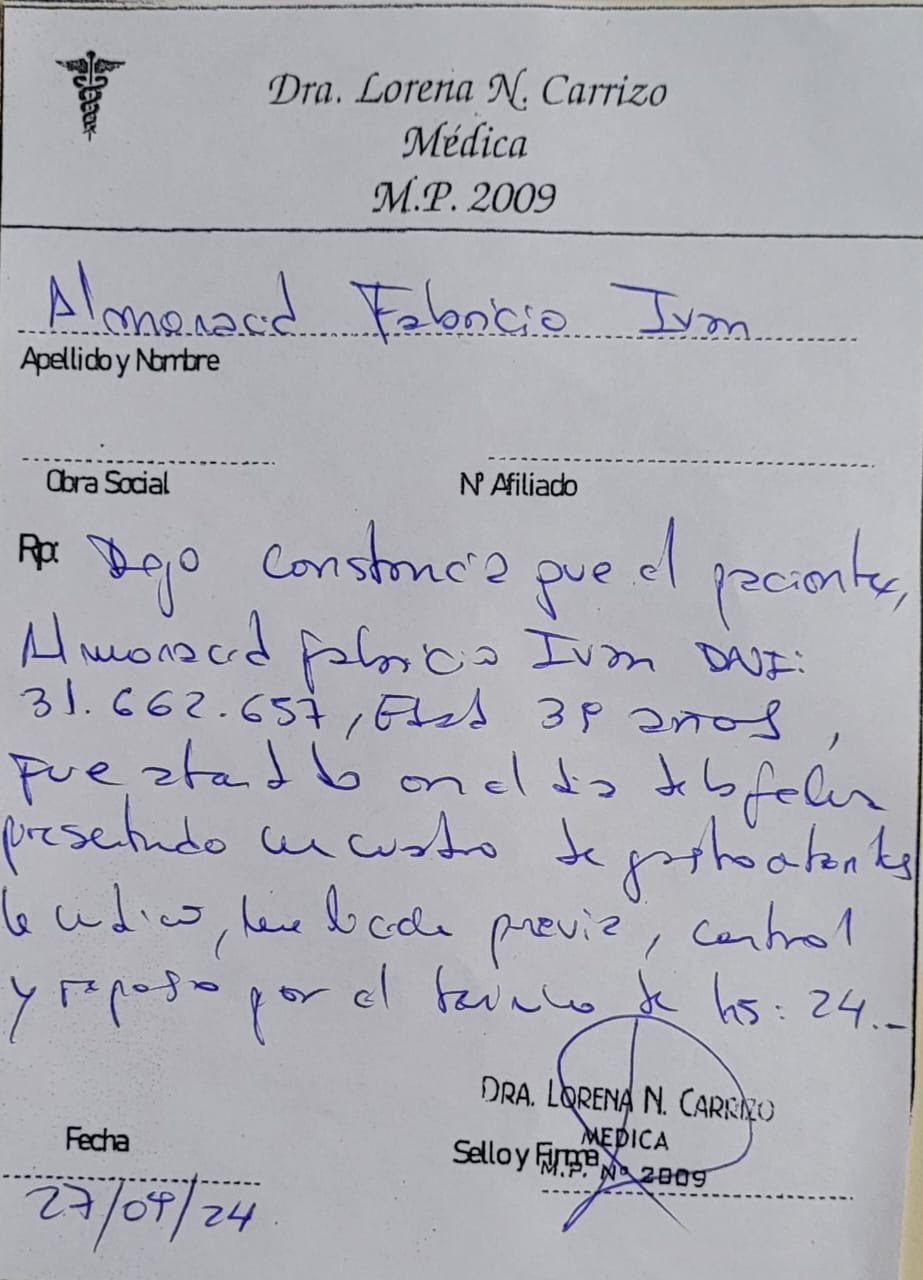 Dra. Lorena N. Carrizo
Médica
M.P. 2009
Almonacid Fabricio Ivan
Apellido y Nombre
Obra Social
Nº Afiliado
Rp: Dejo constancia que el paciente,
Almonacid fabricio Ivan DNI:
31.662.657, Edad 39 años,
fue atendido en el dia de la fecha
presentando un cuadro de gastroenteritis
le indico, previa, control
y reposo por el termino de hs: 24.-
DRA. LORENA N. CARRIZO
MEDICA
M.P. Nº 2009
Sello y Firma
Fecha
27/09/24